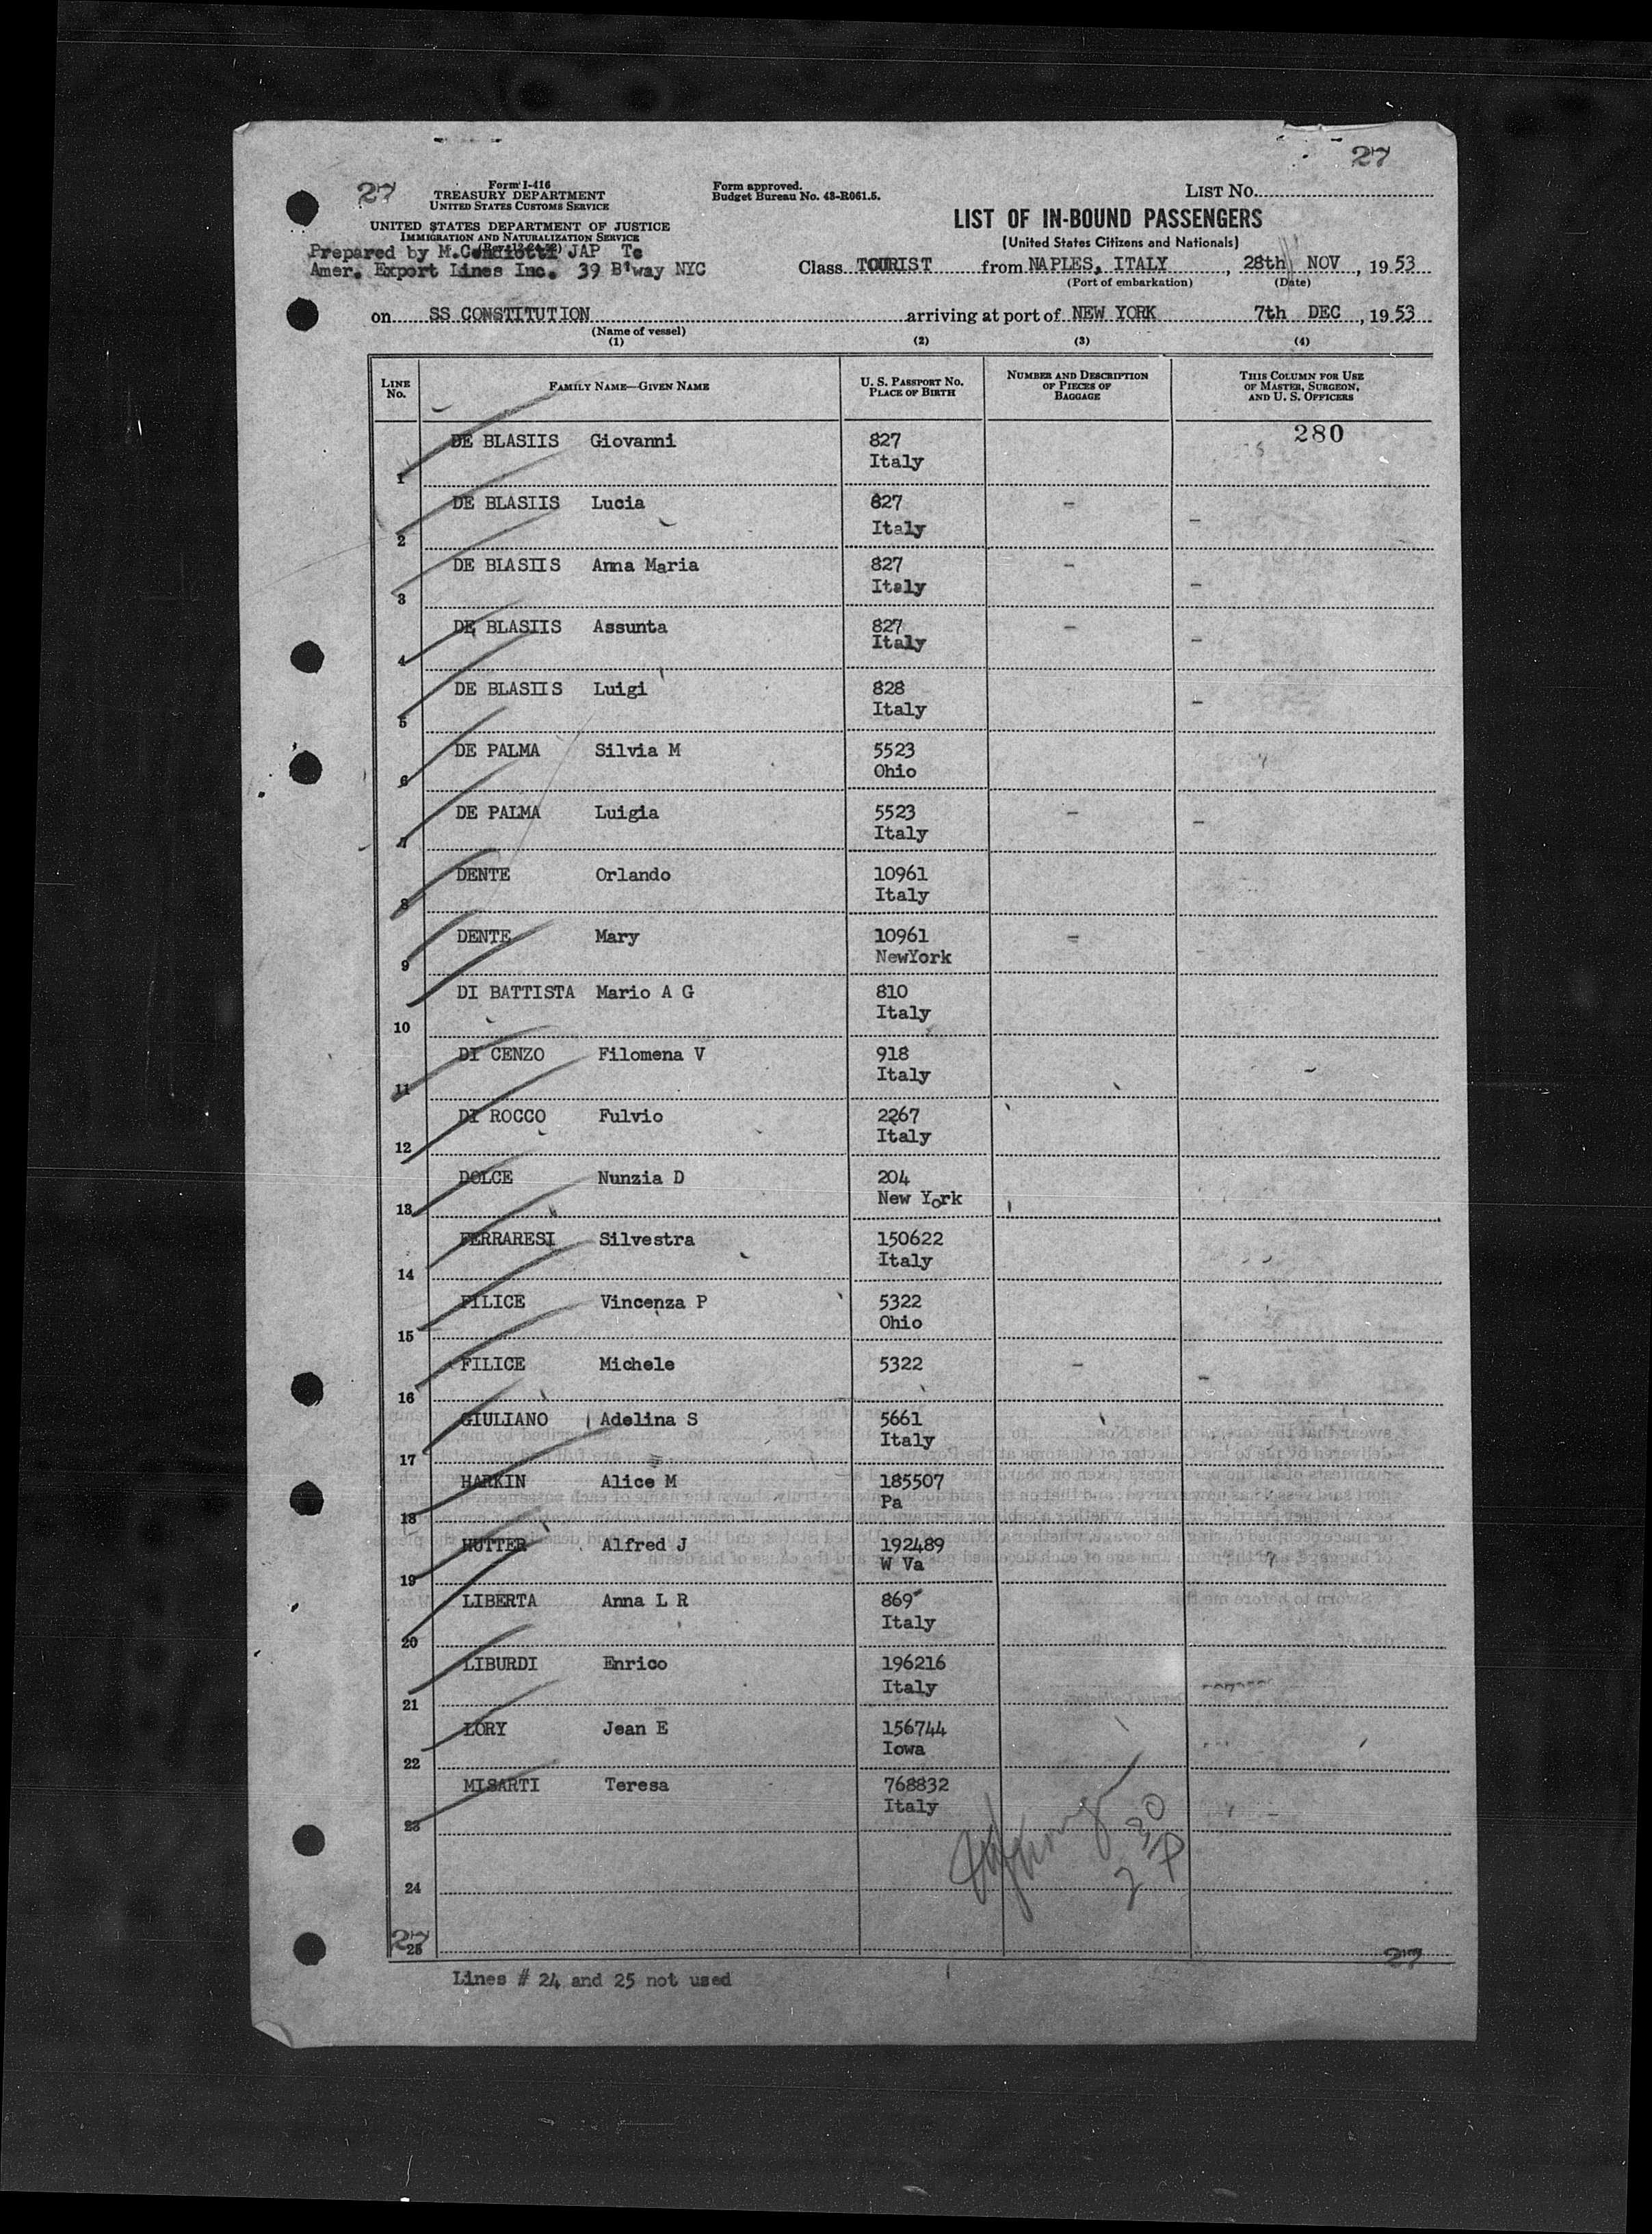 27
27
Form I-416
TREASURY DEPARTMENT
UNITED STATES CUSTOMS SERVICE
Form approved.
Budget Bureau No. 43-R061.5.
LIST NO.
UNITED STATES DEPARTMENT OF JUSTICE
IMMIGRATION AND NATURALIZATION SERVICE
LIST OF IN-BOUND PASSENGERS
(United States Citizens and Nationals)
Prepared by M. JAP Te
Amer. Export Lines Inc. 39 B'way NYC
Class TOURIST from NAPLES, ITALY, 28th NOV, 1953
(Port of embarkation) (Date)
on SS CONSTITUTION arriving at port of NEW YORK 7th DEC, 1953
(Name of vessel)
(1) (2) (3) (4)
LINE No. FAMILY NAME—GIVEN NAME U. S. PASSPORT NO. PLACE OF BIRTH NUMBER AND DESCRIPTION OF PIECES OF BAGGAGE THIS COLUMN FOR USE OF MASTER, SURGEON, AND U. S. OFFICERS
280
1 DE BLASIIS Giovanni 827
Italy
2 DE BLASIIS Lucia 827 -
Italy -
3 DE BLASIIS Anna Maria 827 -
Italy -
4 DE BLASIIS Assunta 827 -
Italy -
5 DE BLASIIS Luigi 828
Italy -
6 DE PALMA Silvia M 5523
Ohio
7 DE PALMA Luigia 5523 -
Italy -
8 DENTE Orlando 10961
Italy
9 DENTE Mary 10961 -
NewYork
10 DI BATTISTA Mario A G 810
Italy
11 DI CENZO Filomena V 918
Italy
12 DI ROCCO Fulvio 2267
Italy
13 DOLCE Nunzia D 204
New York
14 FERRARESI Silvestra 150622
Italy
15 FILICE Vincenza P 5322
Ohio
16 FILICE Michele 5322 -
17 GIULIANO Adelina S 5661
Italy
18 HARKIN Alice M 185507
Pa
19 HUTTER Alfred J 192489
W Va
20 LIBERTA Anna L R 869
Italy
21 LIBURDI Enrico 196216
Italy
22 LORY Jean E 156744
Iowa
23 MISARTI Teresa 768832
Italy
24
25
27
27
Lines # 24 and 25 not used